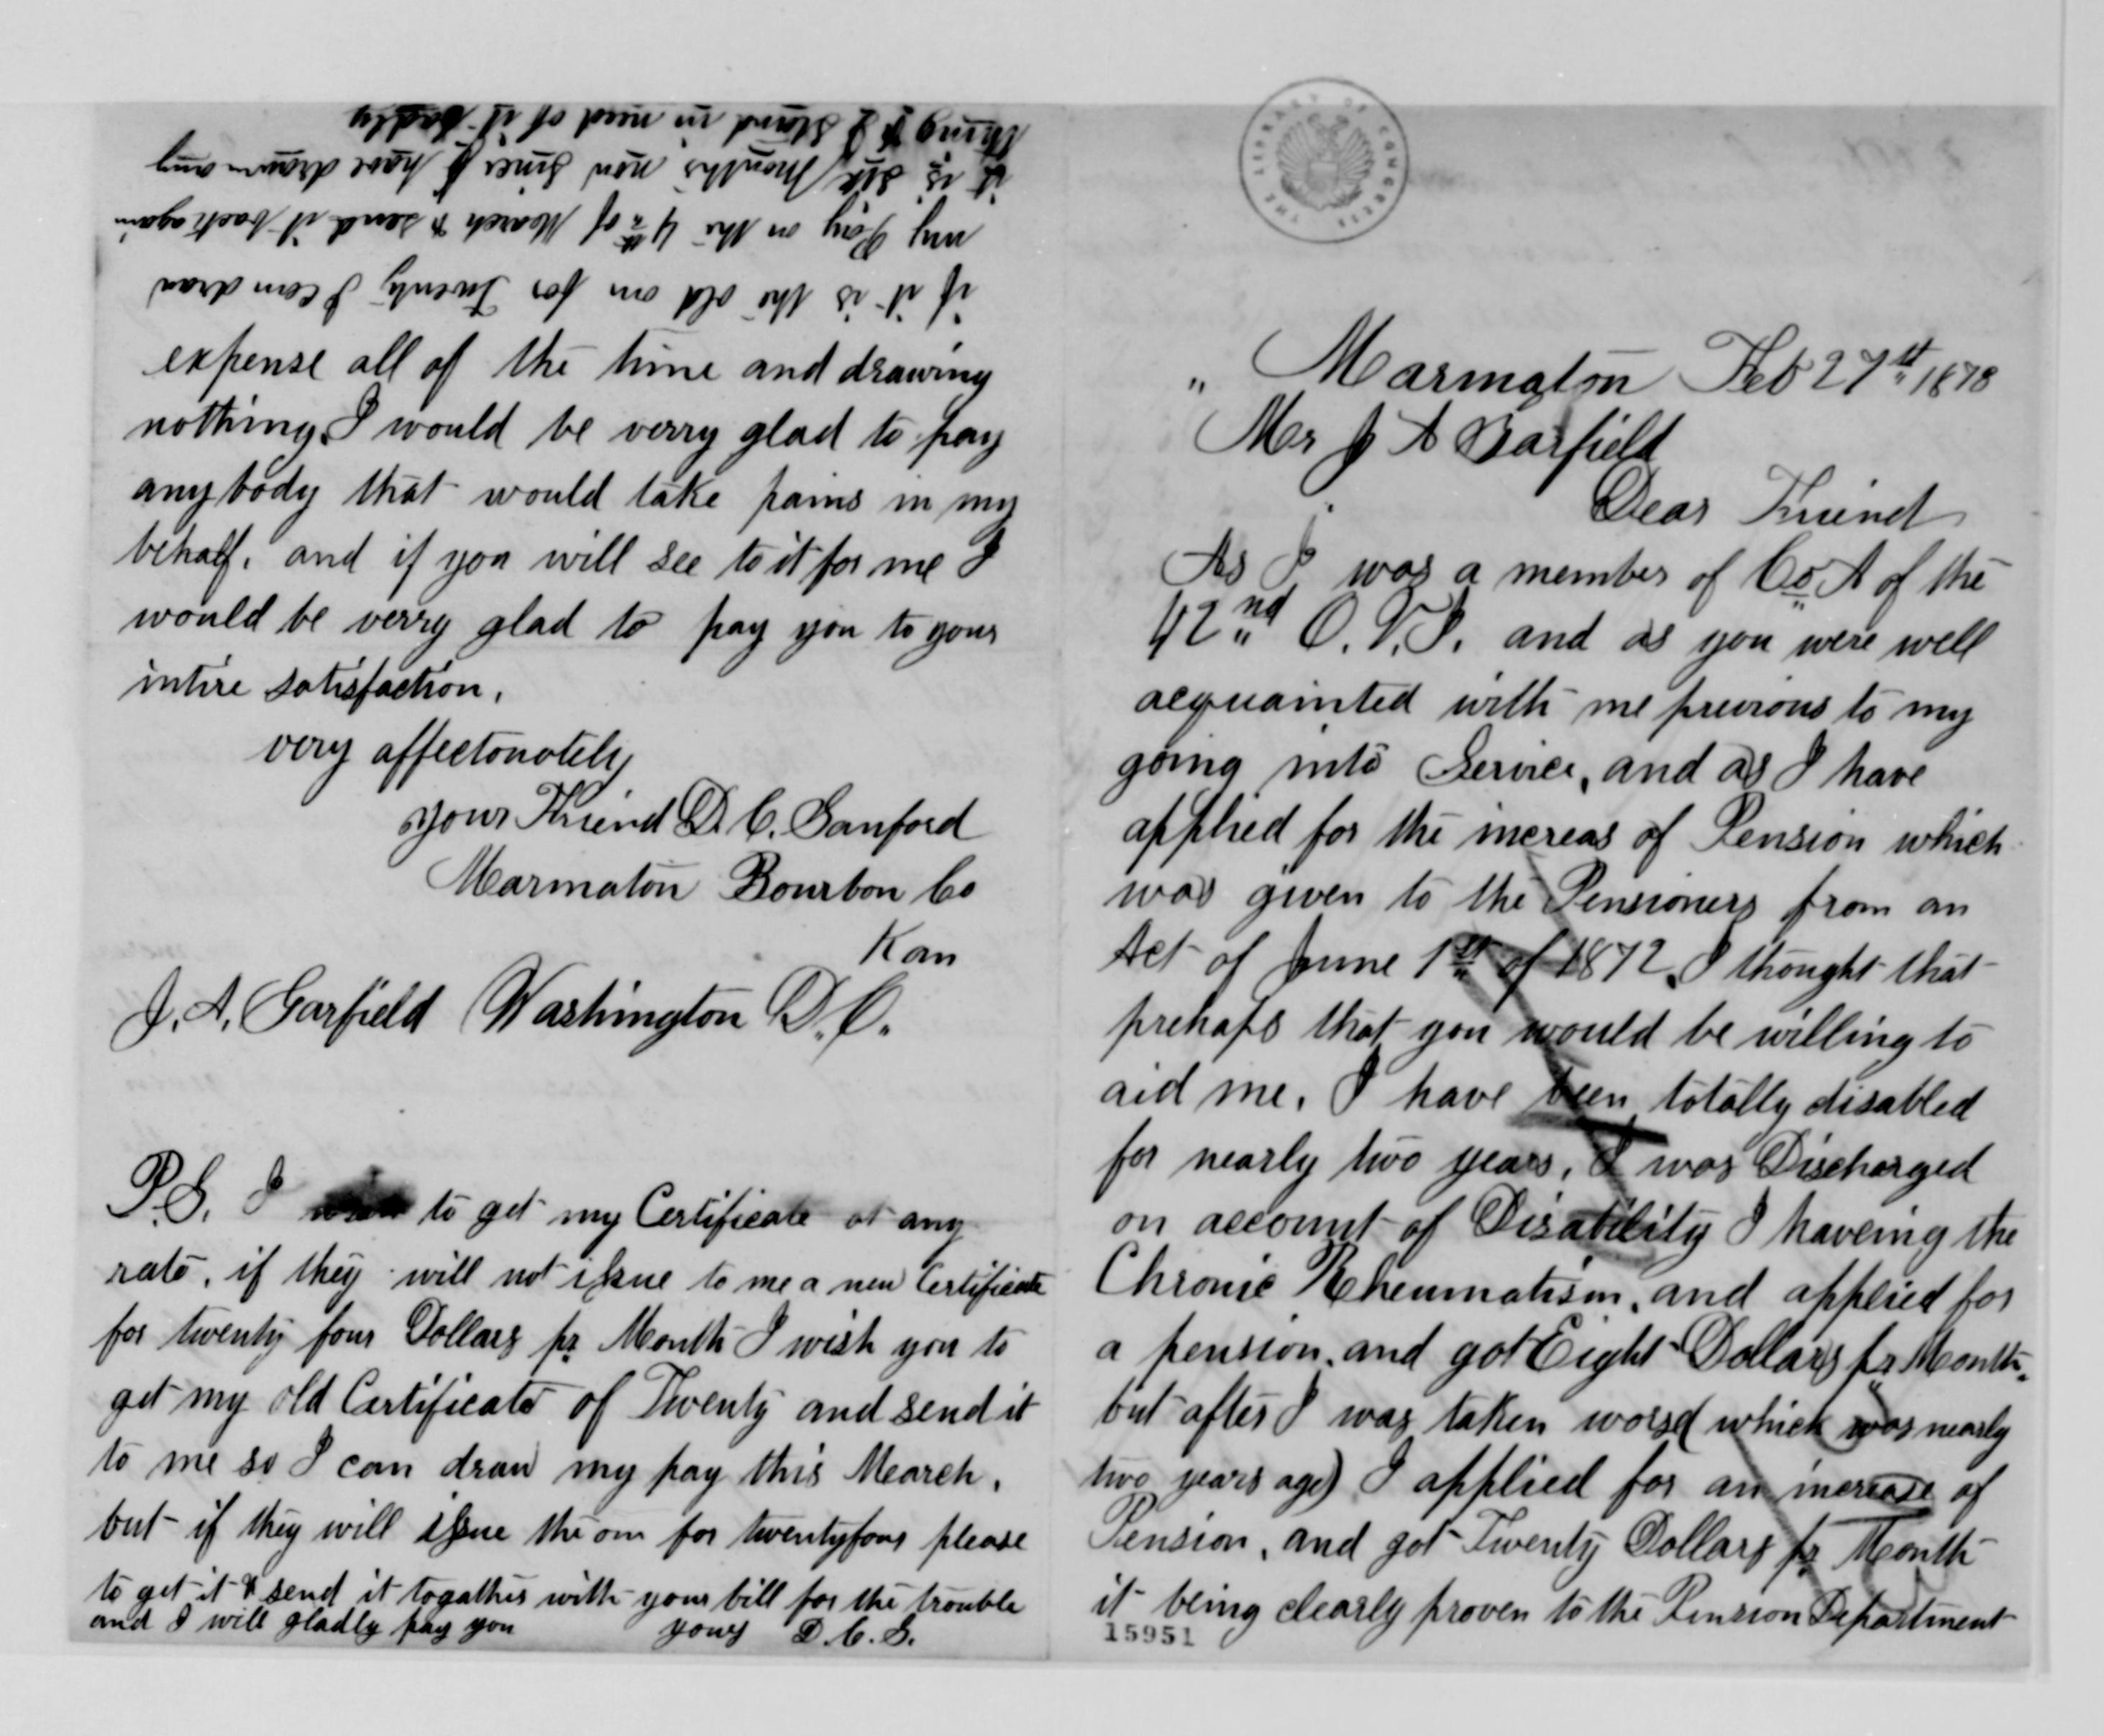 " Marmaton Feb 27th 1873
Mr J A Garfield
Dear Friend
As I was a member of Co A of the
42nd O. V. I. and as you were well
acquainted with me previous to my
going into Service, and as I have
applied for the increas of Pension which
was given to the Pensioners from an
Act of June 1st of 1872, I thought that
prehaps that you would be willing to
aid me. I have been totally disabled
for nearly two years, I was Discharged
on account of Disability I haveing the
Chronic Rheumatism, and applied for
a pension, and got Eight Dollars pr Month,
but after I was taken worse (which was nearly
two years ago) I applied for an increase of
Pension, and got Twenty Dollars pr Month
it being clearly proven to the Pension Department
15951
THE LIBRARY OF CONGRESS
expense all of the time and drawing
nothing, I would be verry glad to pay
anybody that would take pains in my
behalf, and if you will see to it for me I
would be verry glad to pay you to your
intire satisfaction.
very affectonately
your Friend D. C. Sanford
Marmaton Bourbon Co
Kan
J. A. Garfield Washington D. C.
P.S. I to get my Certificate at any
rate, if they will not issue to me a new Certificate
for twenty four Dollars pr Month I wish you to
get my old Certificate of Twenty and send it
to me so I can draw my pay this March,
but if they will issue the one for twentyfour please
to get it & send it togather with your bill for the trouble
and I will gladly pay you yours D. C. S.
if it is the old one for Twenty I can draw
my Pay on the 4th of March & send it back again
it is six Months now since I have drawn any
thing & I stand in need of it badly